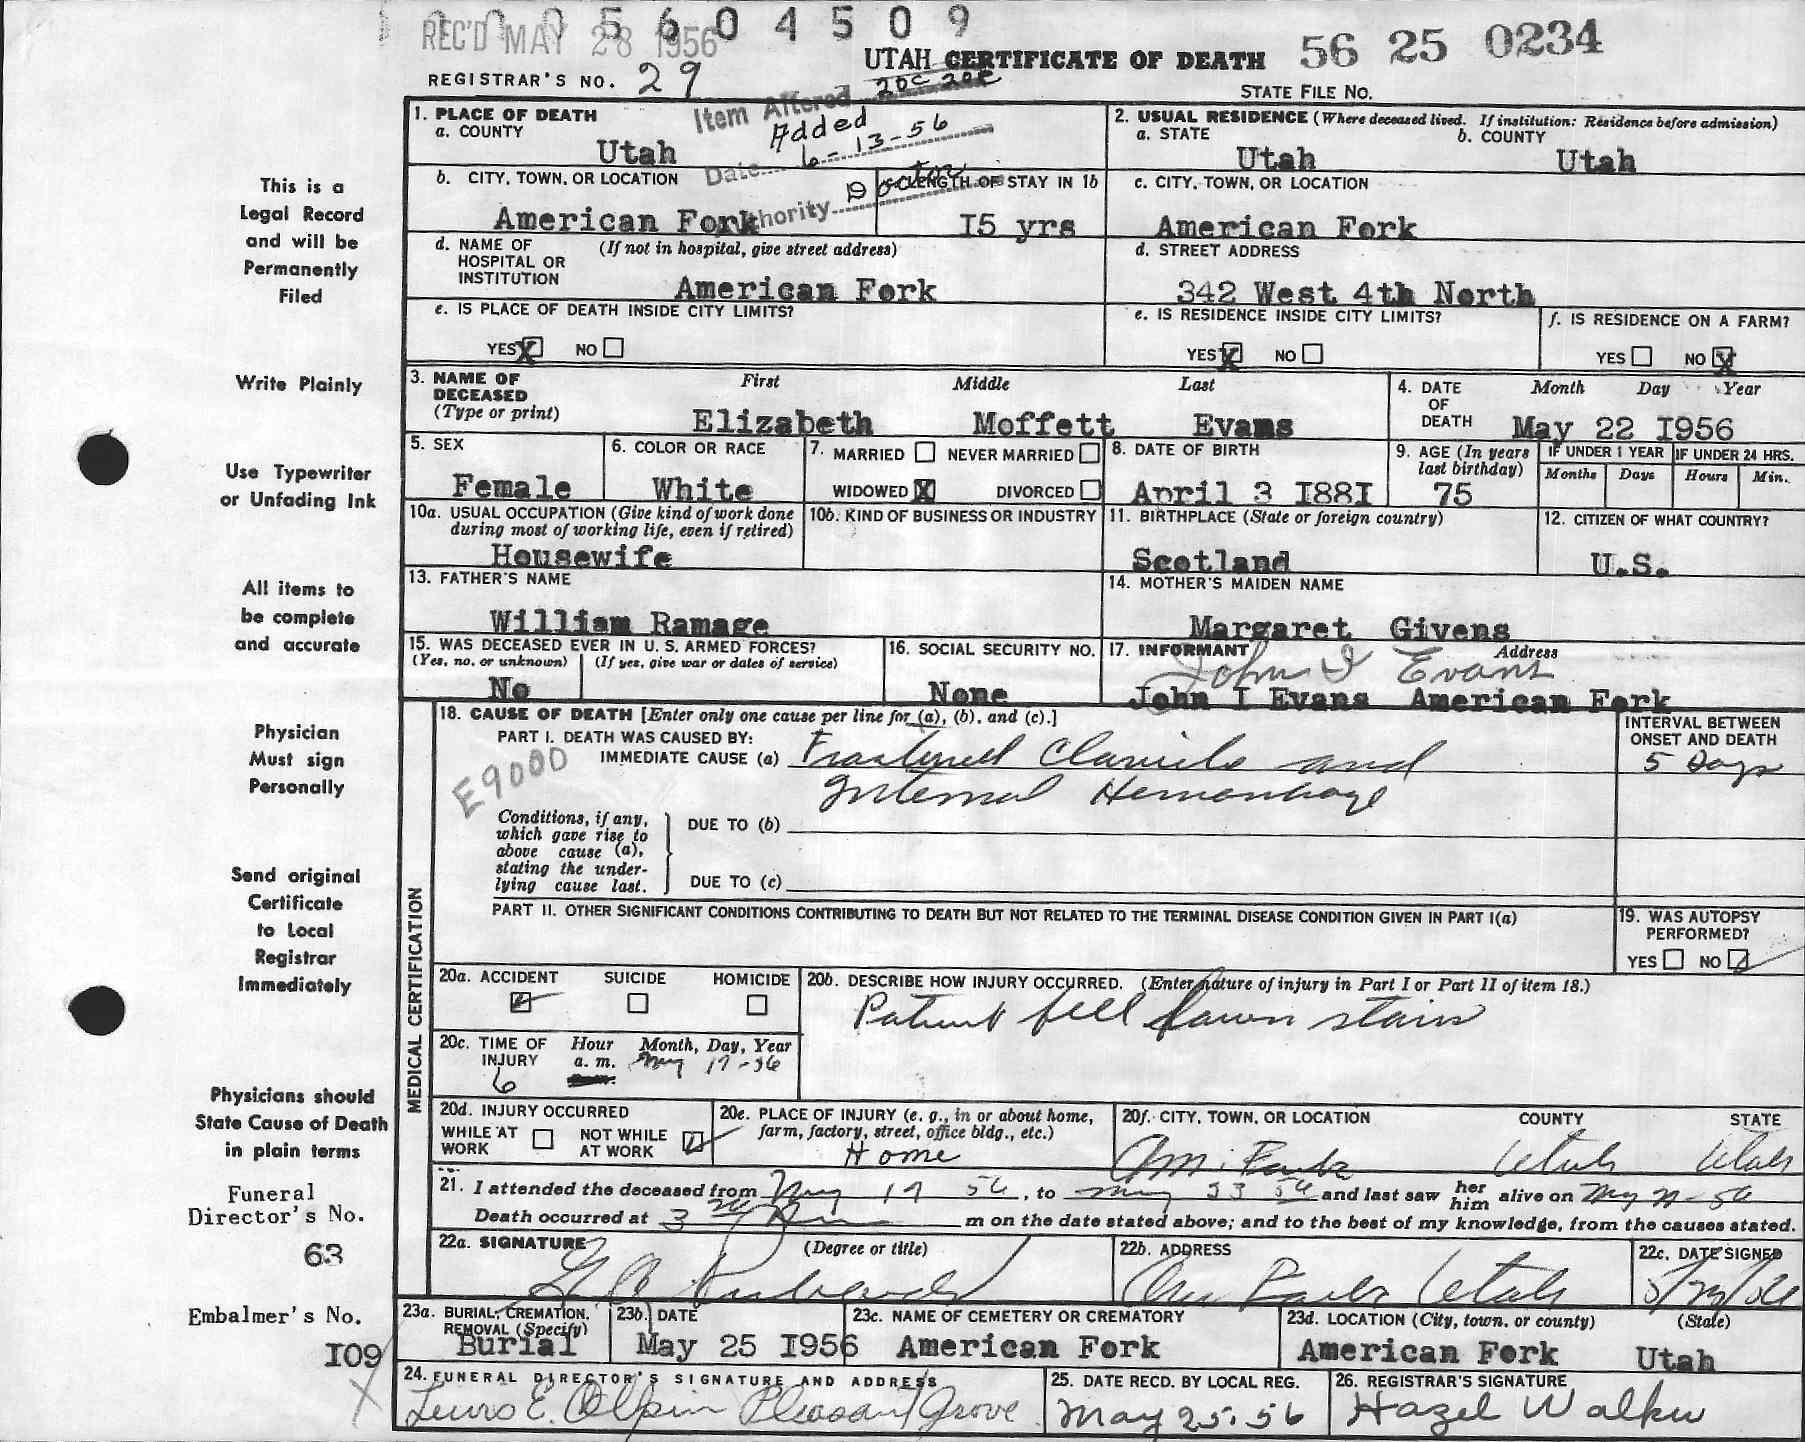 0 0 0 5 6 0 4 5 0 9
REC'D MAY 28 1956
UTAH CERTIFICATE OF DEATH 56 25 0234
REGISTRAR'S NO. 29
STATE FILE NO.
Item Altered 20c 20e
Added
Date 6-13-56
Authority Doctor
1. PLACE OF DEATH
a. COUNTY
Utah
2. USUAL RESIDENCE (Where deceased lived. If institution: Residence before admission)
a. STATE b. COUNTY
Utah Utah
b. CITY, TOWN, OR LOCATION
American Fork
c. LENGTH OF STAY IN 1b
15 yrs
c. CITY, TOWN, OR LOCATION
American Fork
d. NAME OF HOSPITAL OR INSTITUTION (If not in hospital, give street address)
American Fork
d. STREET ADDRESS
342 West 4th North
e. IS PLACE OF DEATH INSIDE CITY LIMITS?
YES X NO
e. IS RESIDENCE INSIDE CITY LIMITS?
YES X NO
f. IS RESIDENCE ON A FARM?
YES NO X
3. NAME OF DECEASED (Type or print)
First Middle Last
Elizabeth Moffett Evans
4. DATE OF DEATH
Month Day Year
May 22 1956
5. SEX
Female
6. COLOR OR RACE
White
7. MARRIED NEVER MARRIED
WIDOWED X DIVORCED
8. DATE OF BIRTH
April 3 1881
9. AGE (In years last birthday)
75
IF UNDER 1 YEAR IF UNDER 24 HRS.
Months Days Hours Min.
10a. USUAL OCCUPATION (Give kind of work done during most of working life, even if retired)
Housewife
10b. KIND OF BUSINESS OR INDUSTRY
11. BIRTHPLACE (State or foreign country)
Scotland
12. CITIZEN OF WHAT COUNTRY?
U.S.
13. FATHER'S NAME
William Ramage
14. MOTHER'S MAIDEN NAME
Margaret Givens
15. WAS DECEASED EVER IN U. S. ARMED FORCES?
(Yes, no, or unknown) (If yes, give war or dates of service)
No
16. SOCIAL SECURITY NO.
None
17. INFORMANT Address
John I Evans
John I Evans American Fork
MEDICAL CERTIFICATION
18. CAUSE OF DEATH [Enter only one cause per line for (a), (b), and (c).]
PART I. DEATH WAS CAUSED BY:
IMMEDIATE CAUSE (a) Fractured Clavicle and
Internal Hemorrhage
E9000
INTERVAL BETWEEN ONSET AND DEATH
5 Days
Conditions, if any, which gave rise to above cause (a), stating the underlying cause last.
DUE TO (b)
DUE TO (c)
PART II. OTHER SIGNIFICANT CONDITIONS CONTRIBUTING TO DEATH BUT NOT RELATED TO THE TERMINAL DISEASE CONDITION GIVEN IN PART I(a)
19. WAS AUTOPSY PERFORMED?
YES NO
20a. ACCIDENT SUICIDE HOMICIDE
20b. DESCRIBE HOW INJURY OCCURRED. (Enter nature of injury in Part I or Part II of item 18.)
Patient fell down stairs
20c. TIME OF INJURY Hour Month, Day, Year
6 a. m. May 17-56
20d. INJURY OCCURRED
WHILE AT WORK NOT WHILE AT WORK
20e. PLACE OF INJURY (e. g., in or about home, farm, factory, street, office bldg., etc.)
Home
20f. CITY, TOWN, OR LOCATION COUNTY STATE
Am. Fork Utah Utah
21. I attended the deceased from May 17 56, to May 56 and last saw her him alive on May 56
Death occurred at 3 m on the date stated above; and to the best of my knowledge, from the causes stated.
22a. SIGNATURE (Degree or title)
22b. ADDRESS
Am Fork Utah
22c. DATE SIGNED
23a. BURIAL, CREMATION, REMOVAL (Specify)
Burial
23b. DATE
May 25 1956
23c. NAME OF CEMETERY OR CREMATORY
American Fork
23d. LOCATION (City, town, or county) (State)
American Fork Utah
24. FUNERAL DIRECTOR'S SIGNATURE AND ADDRESS
Lewis E. Olpin Pleasant Grove
25. DATE RECD. BY LOCAL REG.
May 25. 56
26. REGISTRAR'S SIGNATURE
Hazel Walker
This is a
Legal Record
and will be
Permanently
Filed
Write Plainly
Use Typewriter
or Unfading Ink
All items to
be complete
and accurate
Physician
Must sign
Personally
Send original
Certificate
to Local
Registrar
Immediately
Physicians should
State Cause of Death
in plain terms
Funeral
Director's No.
63
Embalmer's No.
109
X